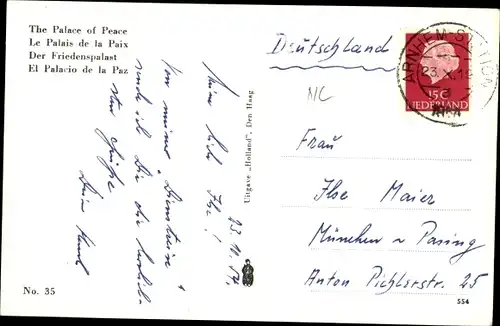 The Palace of Peace
Le Palais de la Paix
Der Friedenspalast
El Palacio de la Paz
Deutschland
ARNHEM-STATION
23.X.19
15 C
NEDERLAND
NC
23.10.
Meine liebe Ilse!
Von meiner "Dienstreise"
sende ich Dir die
Grüße
Dein
Uitgave „Holland", Den Haag
Frau
Ilse Maier
München - Pasing
Anton Pichlerstr. 25
No. 35
554